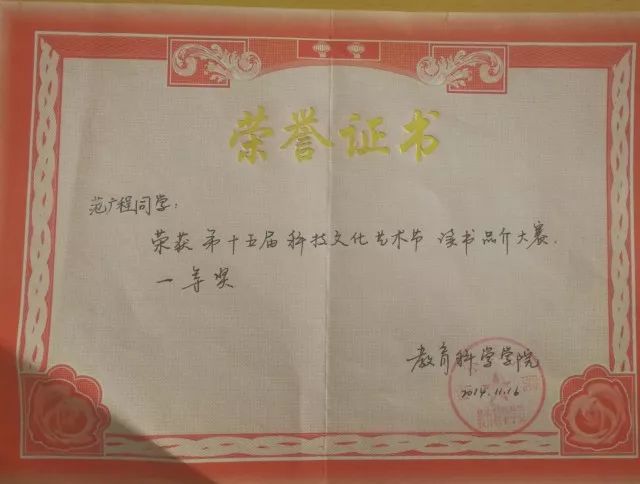 荣誉证书
范广程同学：
荣获第十五届科技文化艺术节读书品介大赛.
一等奖
教育科学学院
2014.11.16